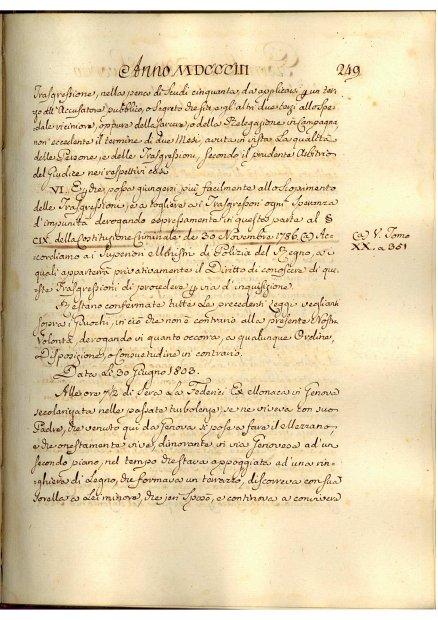 Anno MDCCCIII
249
Trasgressione, nella pena di Scudi cinquanta, da applicarsi p un ter-
zo all' Accusatore pubblico, o segreto che sia, e gl'altri due terzi allo Spe-
dale viciniore, oppure della Carcere, o della Relegazione in Campagna
non eccedente il termine di due Mesi, avuta in vista La qualità
delle Persone, e delle Trasgressioni, secondo il prudente Arbitrio
del Giudice nei respettivi casi.
VI. E p che possa giungersi più facilmente allo scoprimento
delle Trasgressioni, e a togliere ai Trasgressori ogni Speranza
d'impunità derogando espressamente in questa parte al §
CIX. della Costituzione Criminale de 30 Novembre 1786 (a) Ac-
(a) V. Tomo
XX. a 351
cordiamo ai Superiori e Ministri di Polizia del Regno, a i
quali apparterrà privativamente il Diritto di conoscere di que-
ste Trasgressioni di procedere p via di inquisizione.
Restano confermate tutte Le precedenti Leggi veglianti
sopra i Giuochi, in ciò che non è contrario alla presente Nostra
Volontà, derogando, in quanto occorra, a qualunque Ordine,
Disposizione, o Consuetudine in contrario.
Data Le 30 Giugno 1803.
Alle ore 7½ di Sera La Federici Ex Monaca in Genova
secolarizzata nelle passate turbolenze se ne viveva con suo
Padre, che venuto qui da Genova si pose a fare il Mezzano
e che onestamente vive, dimorante in via Genovesa ad un
secondo piano, nel tempo che stava appoggiata ad una rin-
ghiera di Legno, che formava un terrazzo, discorreva con sua
sorella a Lei minore, che jeri Sposò, e continova a convivere